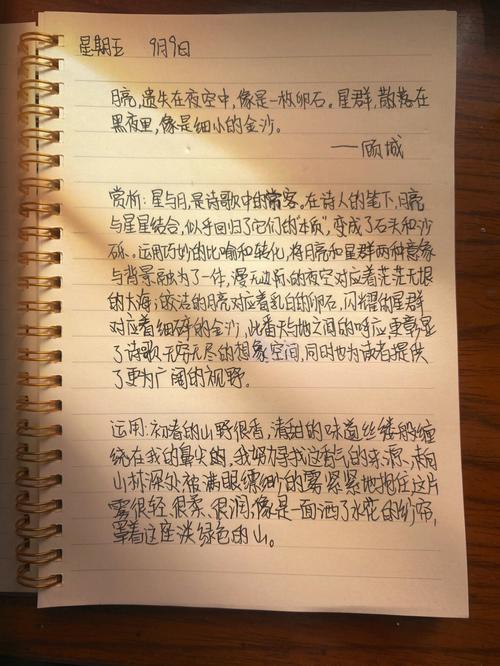 星期五 9月9日
月亮,遗失在夜空中,像是一枚卵石。星群,散落在
黑夜里,像是细小的金沙。
——顾城
赏析:星与月,是诗歌中的常客。在诗人的笔下,月亮
与星星结合,似乎回归了它们的"本质",变成了石头和沙
砾。运用巧妙的比喻和转化,将月亮和星群两种意象
与背景融为了一体,漫无边际的夜空对应着茫茫无垠
的大海;皎洁的月亮对应着乳白的卵石,闪耀的星群
对应着细碎的金沙,此番天与地之间的呼应,更彰显
了诗歌无穷无尽的想象空间,同时也为读者提供
了更为广阔的视野。
运用:初春的山野很香,清甜的味道丝缕般缠
绕在我的鼻尖的,我努力寻找这香气的来源,来自
山林深处被满眼缥缈的雾紧紧地抱住这片
雾很轻,很柔、很润,像是一面洒了水花的纱帘,
罩着这座淡绿色的山。